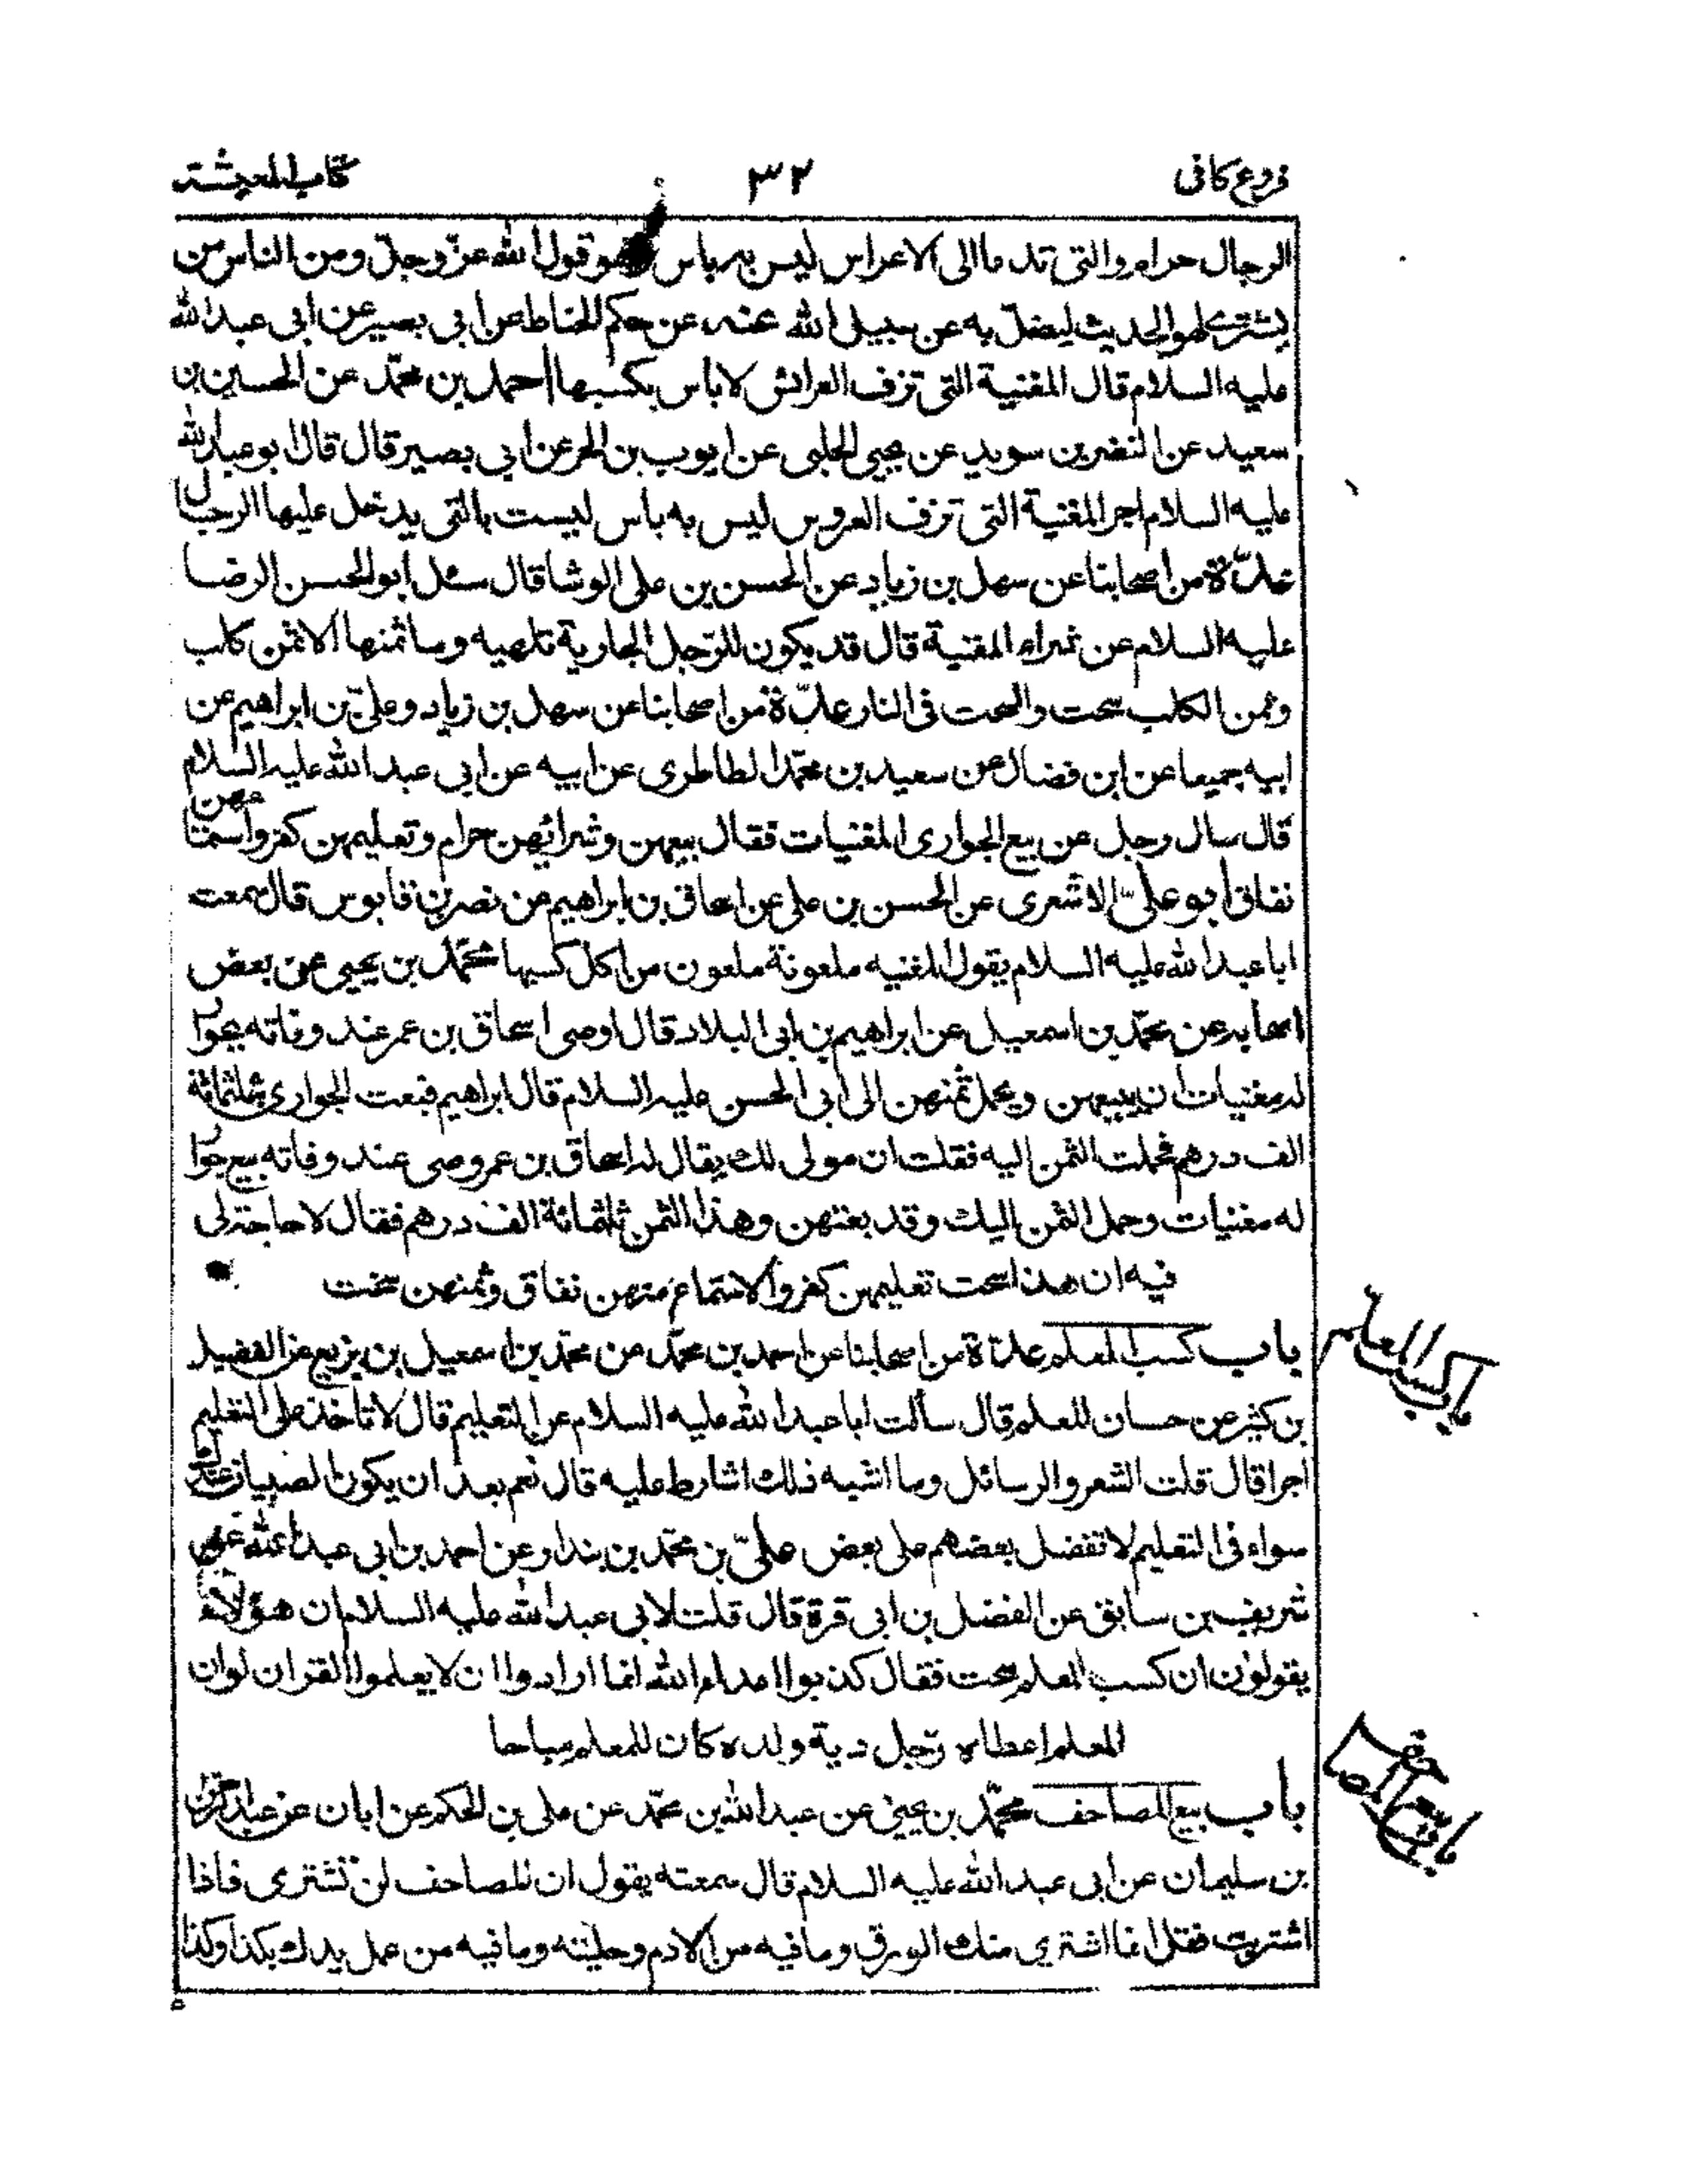 فروع كافى
٣٢
كتاب المعيشة
الرجال حرام والتى تدعا الى الاعراس ليس به باس وهو قول الله عزّ وجلّ ومن الناس من
يشترى لهو الحديث ليضلّ به عن سبيل الله عنه عن حكم الحناط عن ابى بصير عن ابى عبد الله
عليه السلام قال المغنية التى تزف العرائش لاباس بكسبها احمد بن محمّد عن الحسين بن
سعيد عن النضر بن سويد عن يحيى الحلبى عن ايوب بن الحر عن ابى بصير قال قال ابو عبد الله
عليه السلام اجر المغنية التى تزف العروس ليس به باس ليست بالتى يدخل عليها الرجال
عدّة من اصحابنا عن سهل بن زياد عن الحسن بن على الوشا قال سئل ابو الحسن الرضا
عليه السلام عن شراء المغنية قال قد يكون للرّجل الجارية تلهيه وما ثمنها الا ثمن كلب
وثمن الكلب سحت والسحت فى النار عدّة من اصحابنا عن سهل بن زياد وعلىّ بن ابراهيم عن
ابيه جميعا عن ابن فضال عن سعيد بن محمّد الطاطرى عن ابيه عن ابى عبد الله عليه السلام
قال سال رجل عن بيع الجوارى المغنيات فقال بيعهن وشرائهن حرام وتعليمهن كفر واستماعهن
نفاق ابو علىّ الاشعرى عن الحسن بن على عن اسحاق بن ابراهيم عن نصر بن قابوس قال سمعت
ابا عبد الله عليه السلام يقول المغنيه ملعونة ملعون من اكل كسبها محمّد بن يحيى عن بعض
اصحابه عن محمّد بن اسمعيل عن ابراهيم بن ابى البلاد قال اوصى اسحاق بن عمر عند وفاته بجوار
له مغنيات ان يبيعهن ويحمل ثمنهن الى ابى الحسن عليه السلام قال ابراهيم فبعت الجوارى بثلثمائة
الف درهم فحملت الثمن اليه فقلت ان مولى لك يقال له اسحاق بن عمر وصى عند وفاته ببيع جوار
له مغنيات وحمل الثمن اليك وقد بعتهن وهذا الثمن ثلثمائة الف درهم فقال لا حاجة لى
فيه ان هذا سحت تعليمهن كفر والاستماع منهن نفاق وثمنهن سحت
باب كسب المعلم عدّة من اصحابنا عن احمد بن محمّد عن محمّد بن اسمعيل بن بزيع عن الفضيل
بن كثير عن حسان المعلم قال سألت ابا عبد الله عليه السلام عن التعليم قال لا تاخذ على التعليم
اجرا قال قلت الشعر والرسائل وما اشبه ذلك اشارط عليه قال نعم بعد ان يكون الصبيان عندك
سواء فى التعليم لا تفضل بعضهم على بعض علىّ بن محمّد بن بندار عن احمد بن ابى عبد الله عن
شريف بن سابق عن الفضل بن ابى قرة قال قلت لابى عبد الله عليه السلام ان هؤلاء
يقولون ان كسب المعلم سحت فقال كذبوا اعداء الله انما ارادوا ان لا يعلموا القران لو ان
المعلم اعطاه رجل دية ولده كان للمعلم مباحا
باب بيع المصاحف محمّد بن يحيى عن عبد الله بن محمّد عن على بن الحكم عن ابان عن عبد الرحمن
بن سليمان عن ابى عبد الله عليه السلام قال سمعته يقول ان المصاحف لن تشترى فاذا
اشتريت فقل انما اشترى منك الورق وما فيه من الادم وحليته وما فيه من عمل يدك بكذا وكذا
باب كسب المعلم
باب بيع المصاحف